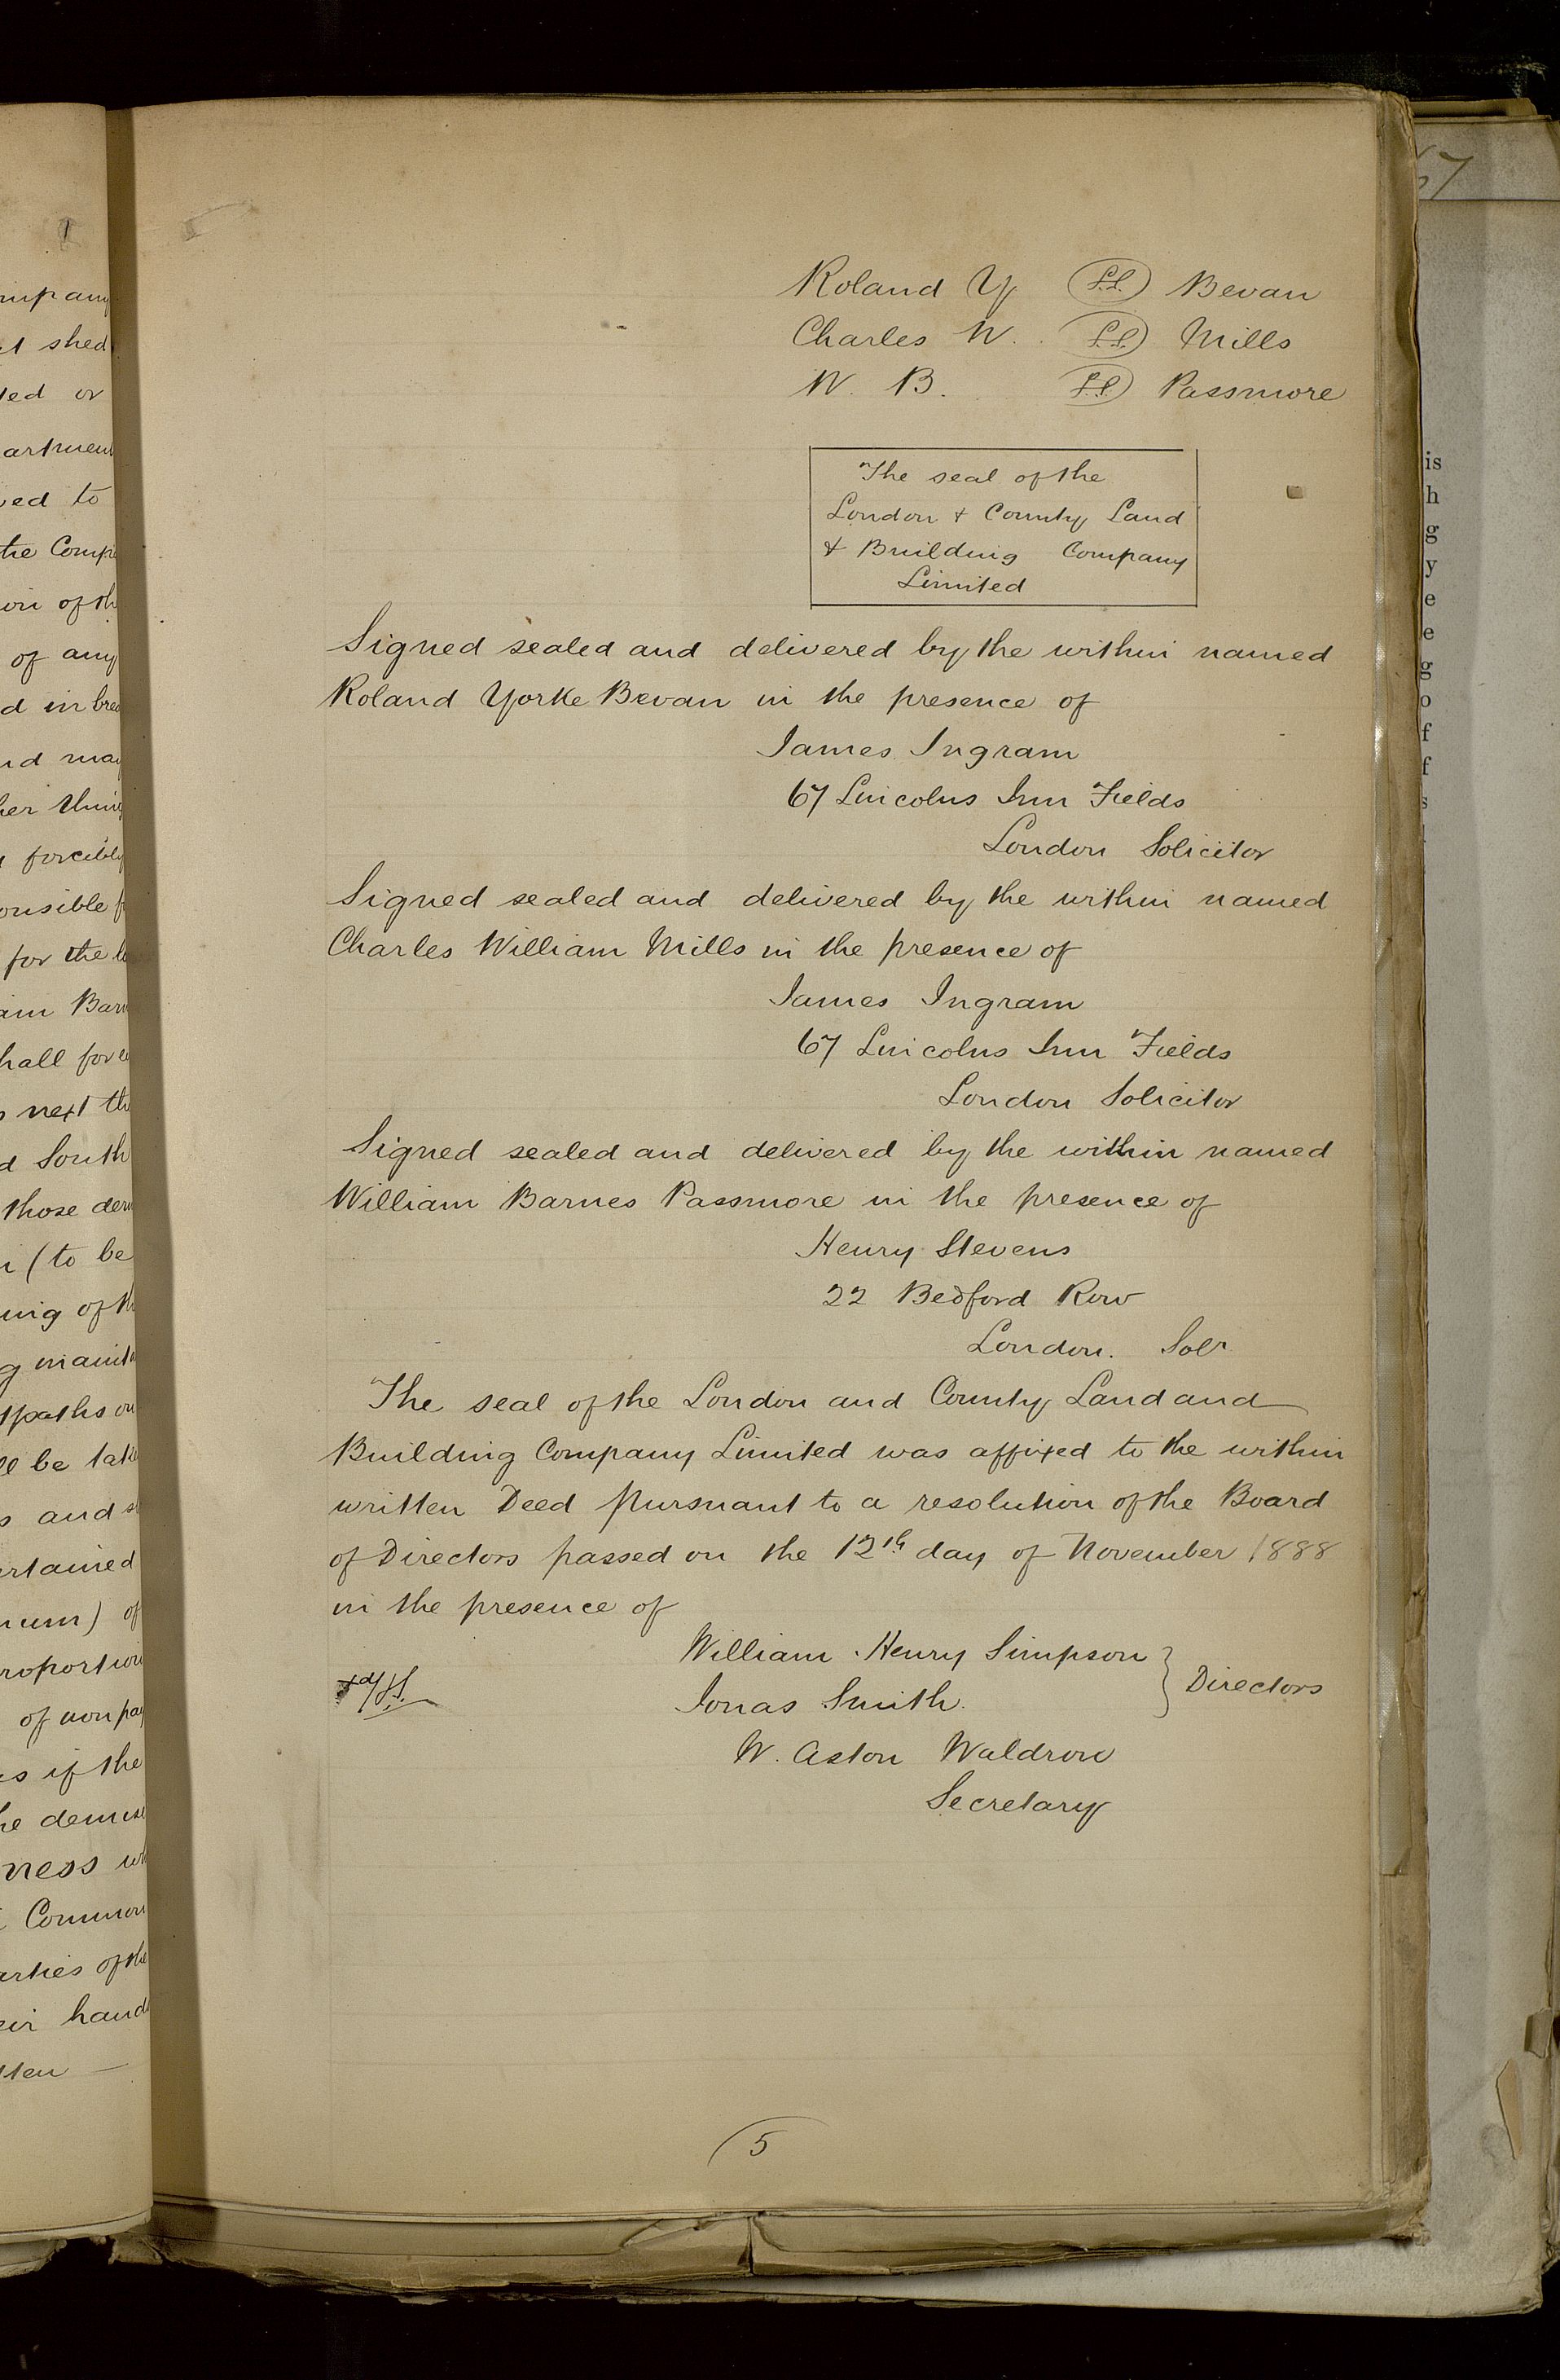 Roland Y L.S. Bevan
Charles W. L.S. Mills
W. B. L.S. Passmore
The seal of the
London & County Land
& Building Company
Limited
Signed sealed and delivered by the within named
Roland Yorke Bevan in the presence of
James Ingram
67 Lincolns Inn Fields
London Solicitor
Signed sealed and delivered by the within named
Charles William Mills in the presence of
James Ingram
67 Lincolns Inn Fields
London Solicitor
Signed sealed and delivered by the within named
William Barnes Passmore in the presence of
Henry Stevens
22 Bedford Row
London. Solr
The seal of the London and County Land and
Building Company Limited was affixed to the within
written Deed pursuant to a resolution of the Board
of Directors passed on the 12th day of November 1888
in the presence of
William Henry Simpson
Jonas Smith
Directors
W. Aston Waldron
Secretary
5